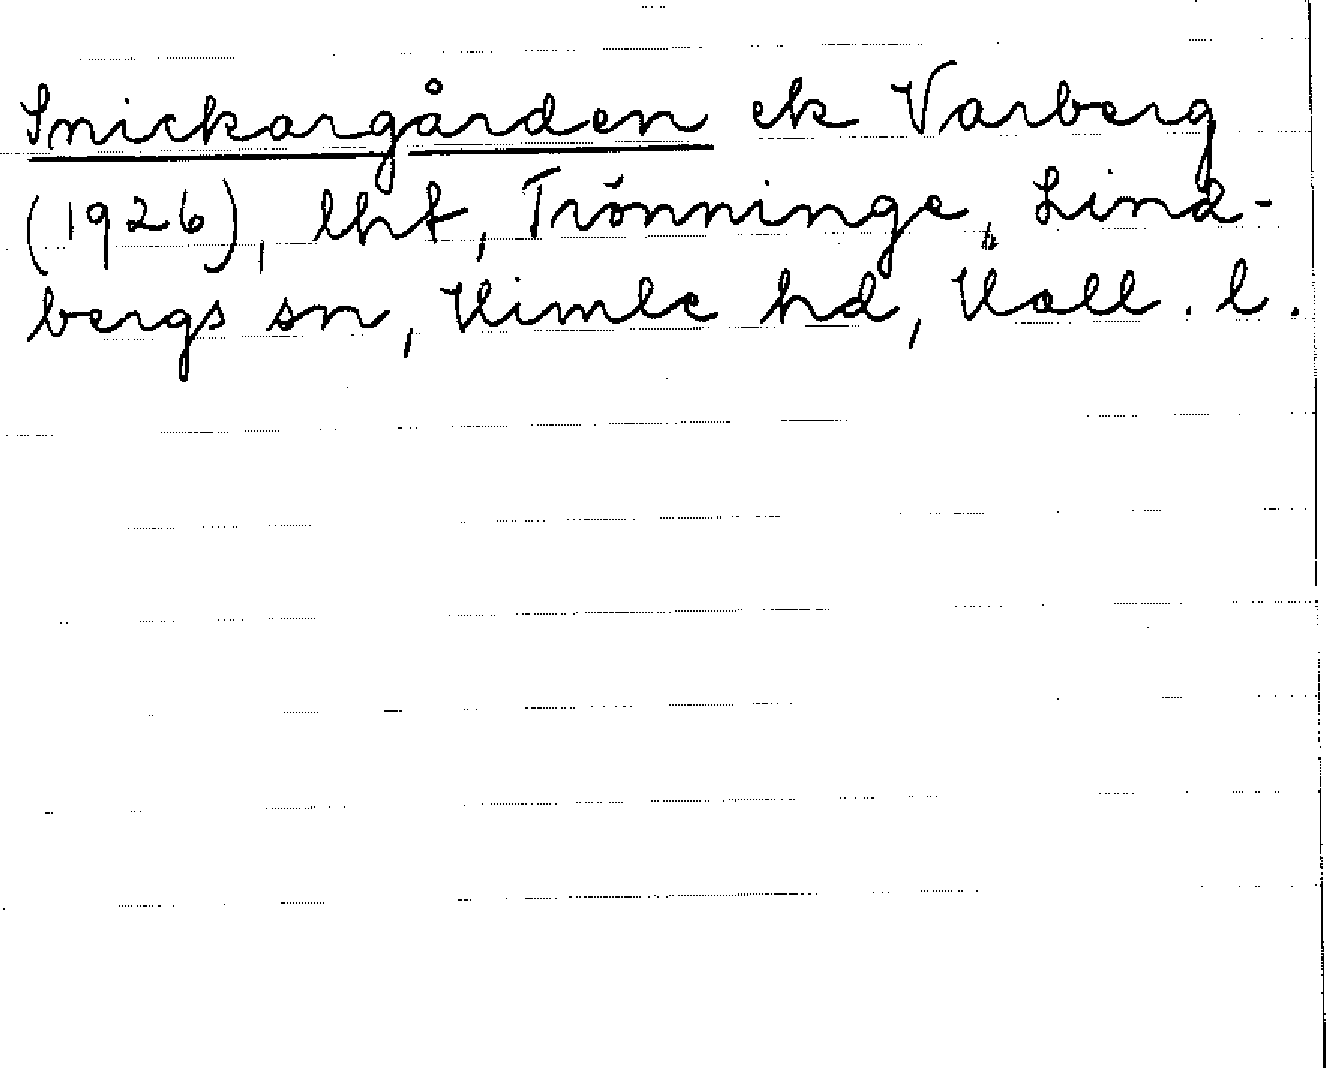 Snickargården ek Varberg
(1926), lht, Trönninge, Lind-
bergs sn, Himle hd, Hall. l.